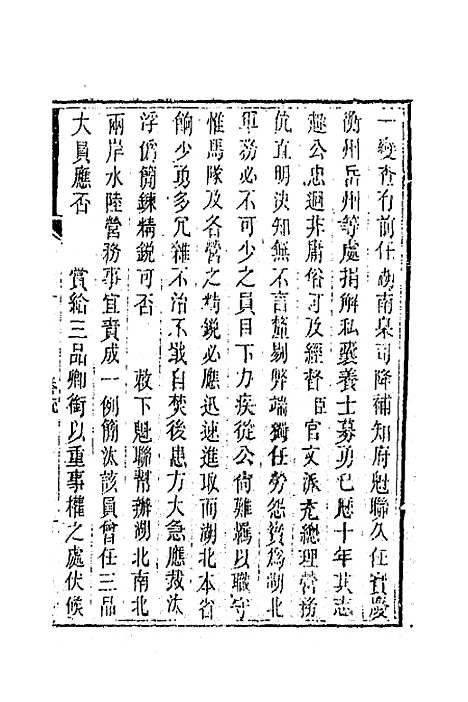 一變查有前任湖南臬司降補知府魁聯久任寶慶
衡州岳州等處捐解私囊養士募勇已歷十年其志
趣公忠迥非庸俗可及經督臣官文派充總理營務
伉直明決知無不言釐剔弊端獨任勞怨實為湖北
軍務必不可少之員目下力疾從公尚難羈以職守
惟馬隊及各營之精銳必應迅速進取而湖北本省
餉少勇多冗雜不治不戢自焚後患方大急應裁汰
浮偽簡鍊精銳可否 敕下魁聯幫辦湖北南北
兩岸水陸營務事宜責成一例簡汰該員曾任三品
大員應否 賞給三品卿銜以重事權之處伏候